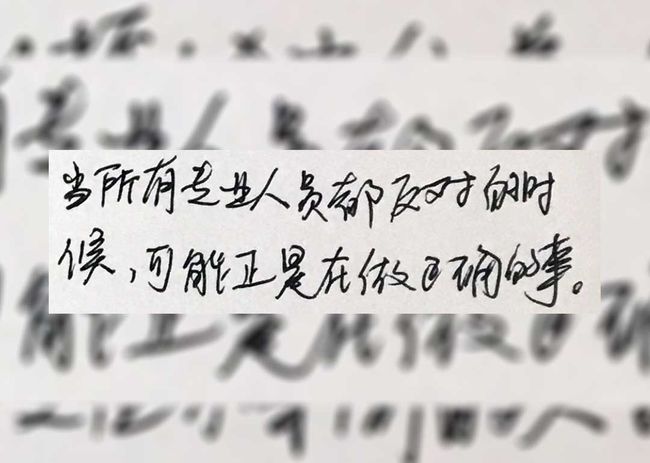 当所有专业人员都反对的时
候，可能正是在做正确的事。